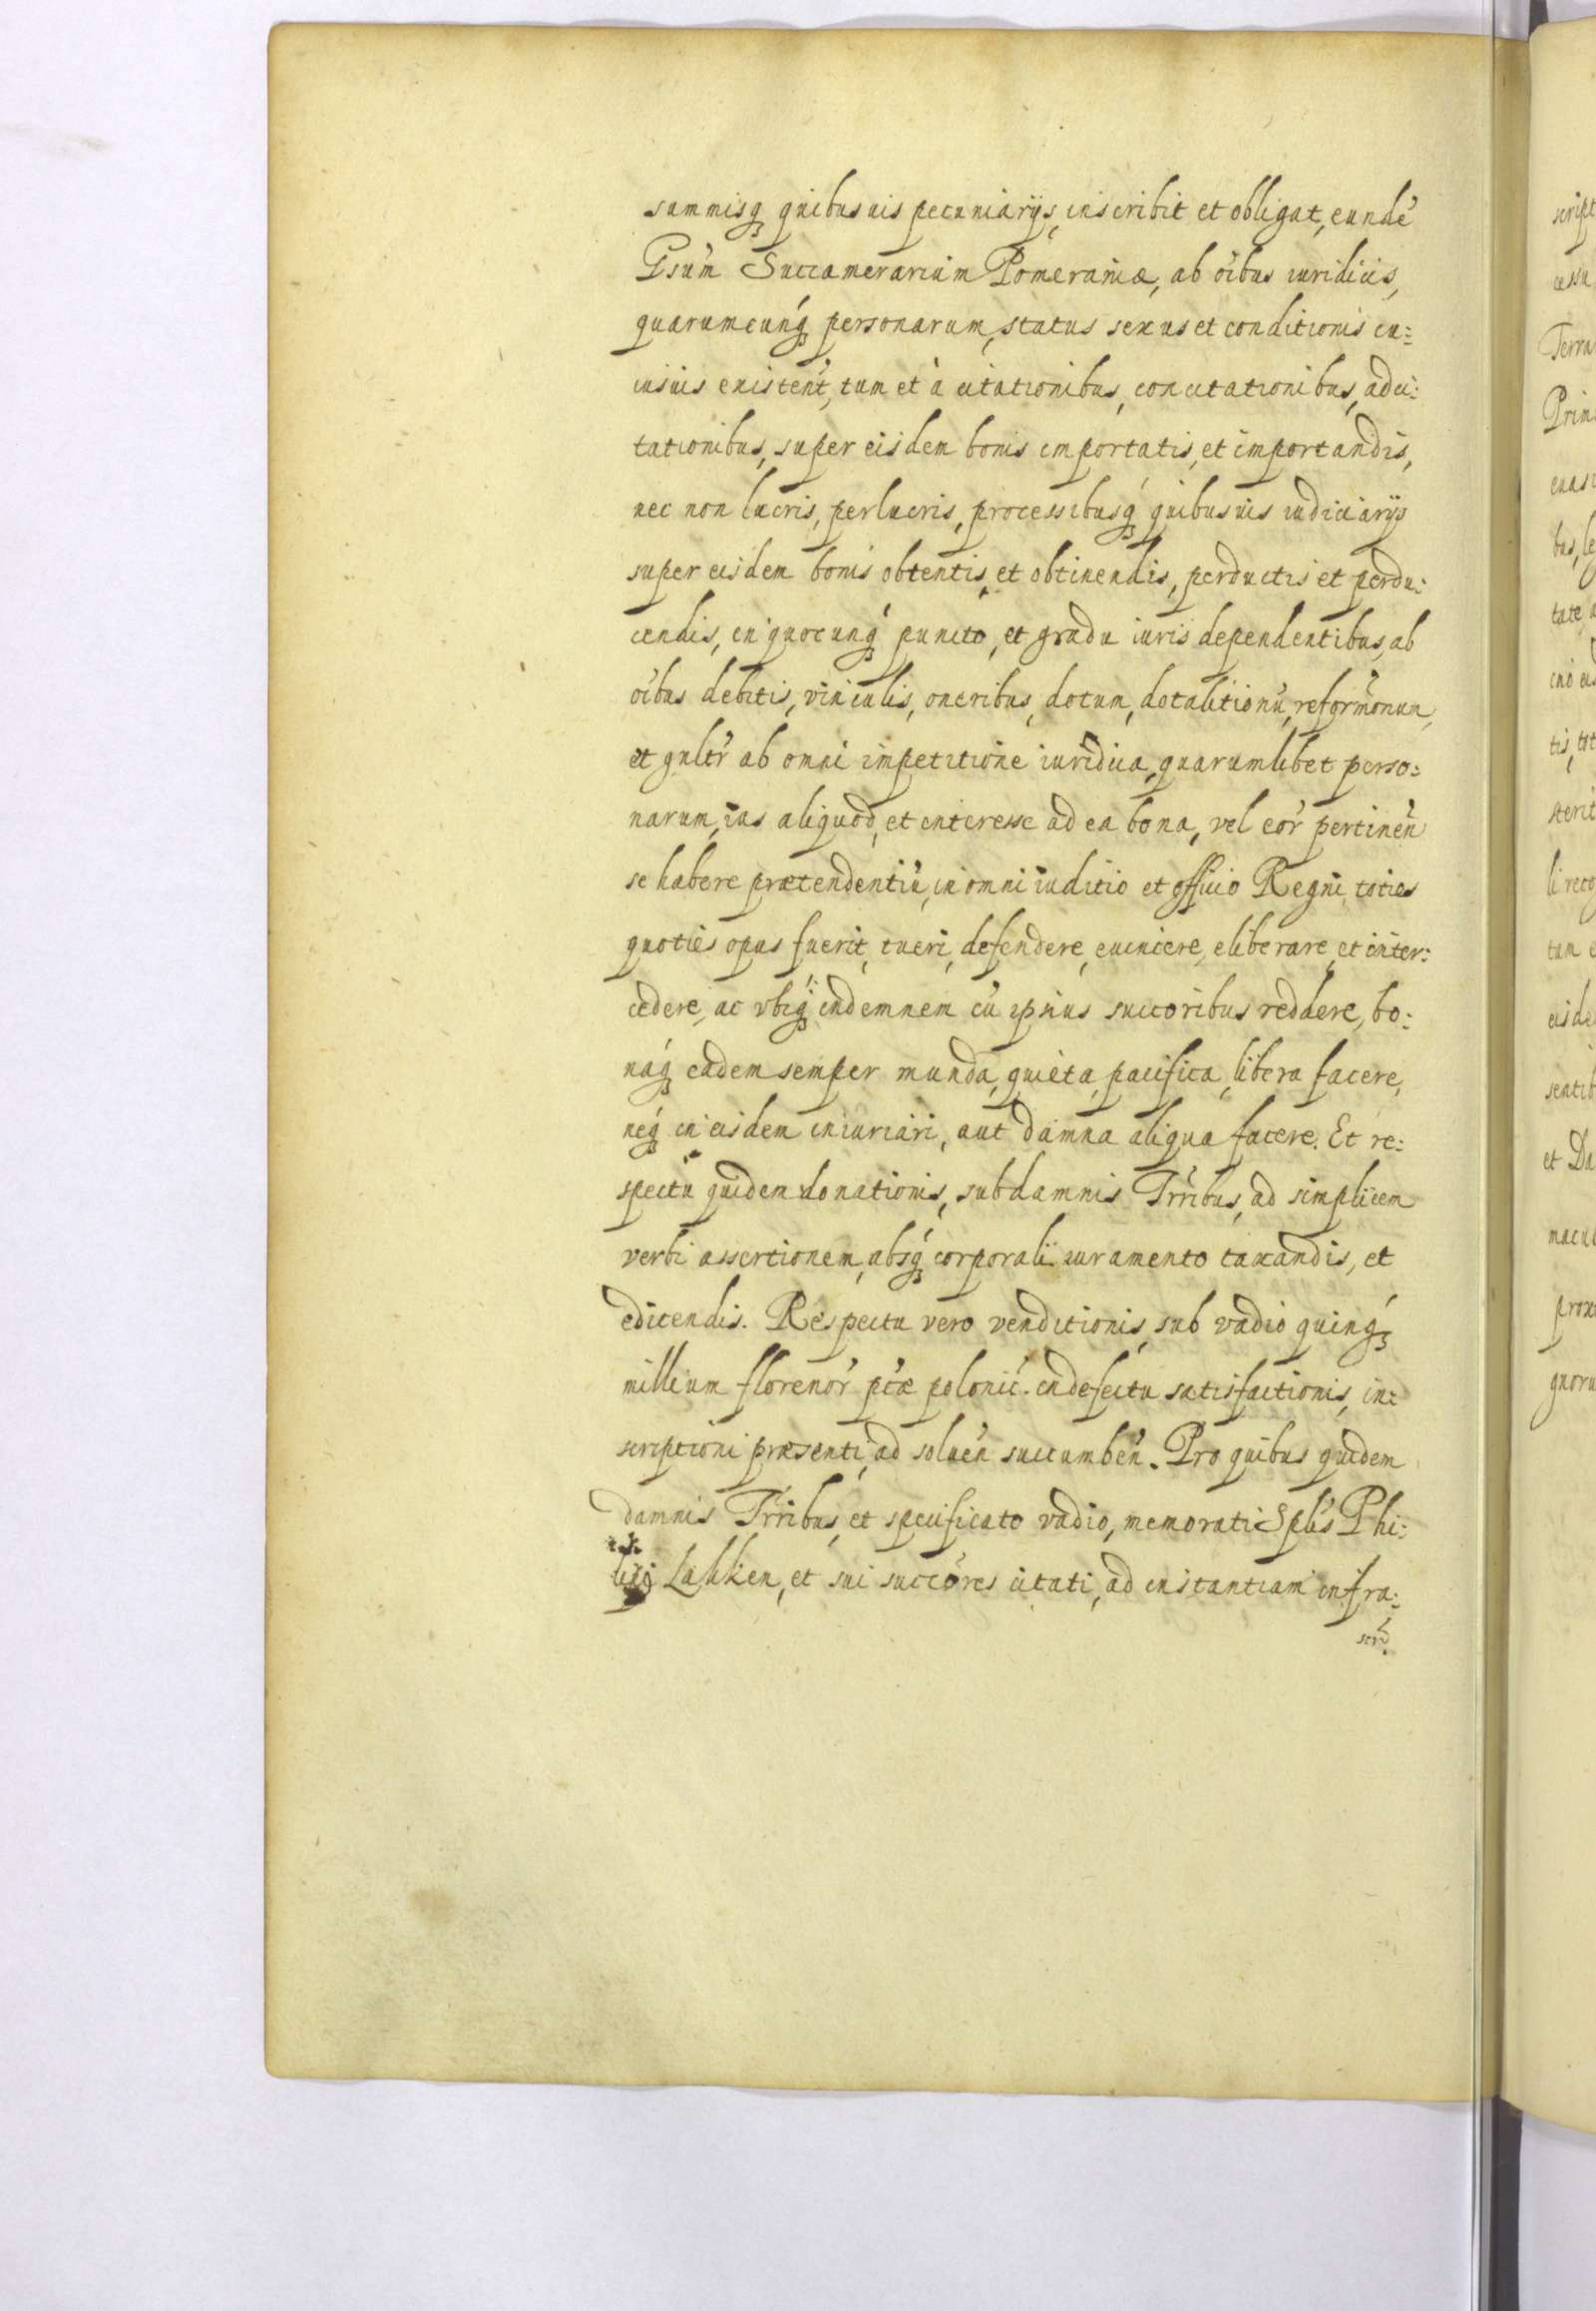 summisq̃ quibusuis pecuniarijs, inscribit et obligat, eundẽ
Gsum̃ Succamerarium Pomeraniæ, ab oĩbus iuridicis,
quarumcunq̃ personarum, status sexus et conditionis cu=
iusuis existeñt, tum et à citationibus, concitationibus, adci=
tationibus, super eisdem bonis importatis, et importandis,
nec non lucris, perlucris, processibusq̃ quibusuis iudiciarijs
super eisdem bonis obtentis, et obtinendis, perductis et perdu=
cendis, in quocunq̃ puncto, et gradu iuris dependentibus, ab
oĩbus debitis, vinculis, oneribus, dotum, dotalitionũ, reform̃onum,
et gnltr̃ ab omni impetitione iuridica, quarumlibet perso=
narum, ius aliquod, et interesse ad ea bona, vel eor̃ pertineñ
se habere prætendentiũ, in omni iuditio et officio Regni, toties
quoties opus fuerit, tueri, defendere, euincere, eliberare, et inter=
cedere, ac vbiq̃ indemnem cũ ipsius succoribus reddere, bo=
naq̃ eadem semper munda, quieta, pacifica, libera facere,
neq̃ in eisdem iniuriari, aut damna aliqua facere. Et re=
spectu quidem donationis, sub damnis Trribus, ad simplicem
verbi assertionem, absq̃ corporali iuramento taxandis, et
edicendis. Respectu vero venditionis, sub vadio quinq̃
millium florenor̃ pc̃æ polonic̃. in defectu satisfactionis, in=
scriptioni præsenti, ad solueñ succumbeñ. Pro quibus quidem
damnis Trribus, et specificato vadio, memorati Spl̃is Phi=
lipi Lakken, et sui succõres citati, ad instantiam infra=
scrĩ.
script
cessu
Terra
Prin
tate
tis, tot
sterit
li reco
tum e
eisde
sentib
et Da
macul
prox
quoru